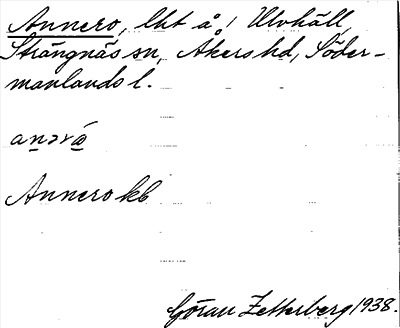 Annero, lht å ! Ulvhäll,
Strängnäs sn, Åkers hd, Söder-
manlands l.
Annero kb
Göran Zetterberg 1938.